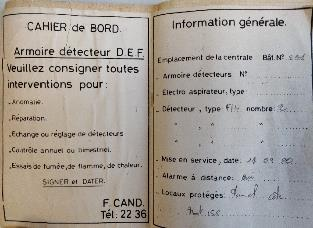 CAHIER de BORD.
Armoire détecteur D.E.F.
Veuillez consigner toutes
interventions pour:
_Anomalie.
_Réparation.
_Echange ou réglage de détecteurs
_Contrôle annuel ou bimestriel.
_Essais de fumée, de flamme, de chaleur.
SIGNER et DATER.
F. CAND.
Tél: 22 36
Information générale.
Emplacement de la centrale Bât. N°
_ Armoire détecteurs N°
_ Electro aspirateur, type
_ Détecteur, type nombre:
" " "
" " "
_ Mise en service, date:
_ Alarme à distance:
_ Locaux protégés: